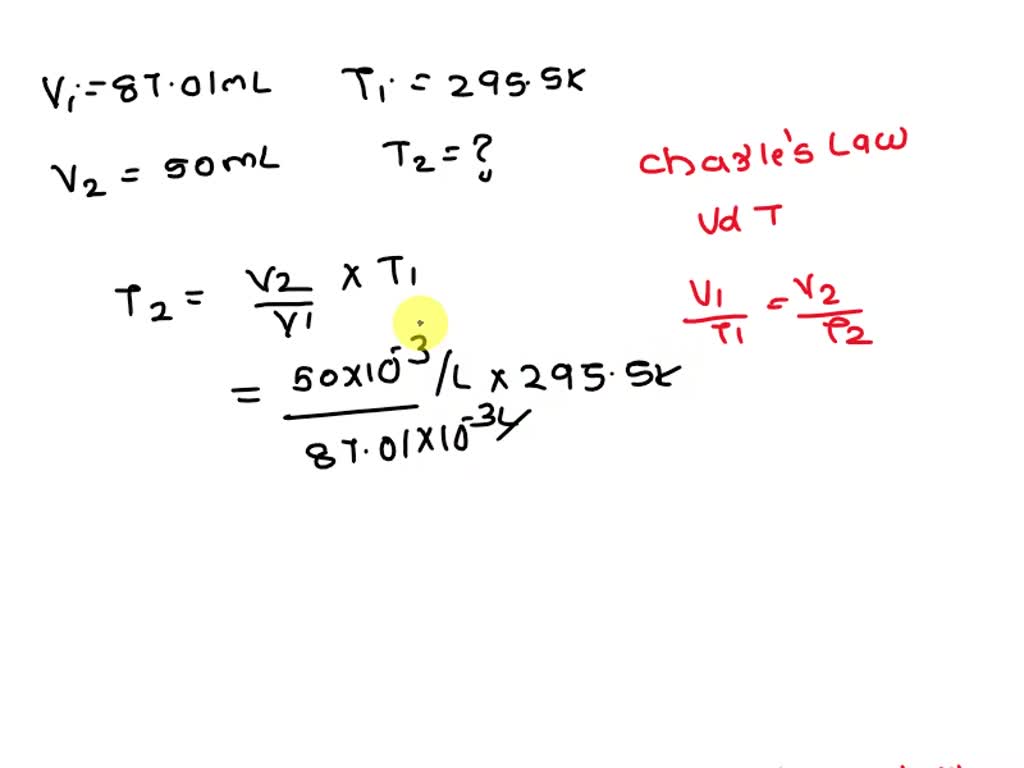 V₁ = 87.01mL T₁ = 295.5K
V₂ = 50mL T₂ = ?
Charle's Law
V α T
T₂ = V2/V1 × T₁
V₁/T₁ = V₂/T₂
= 50×10⁻³ /L × 295.5K
87.01×10⁻³L